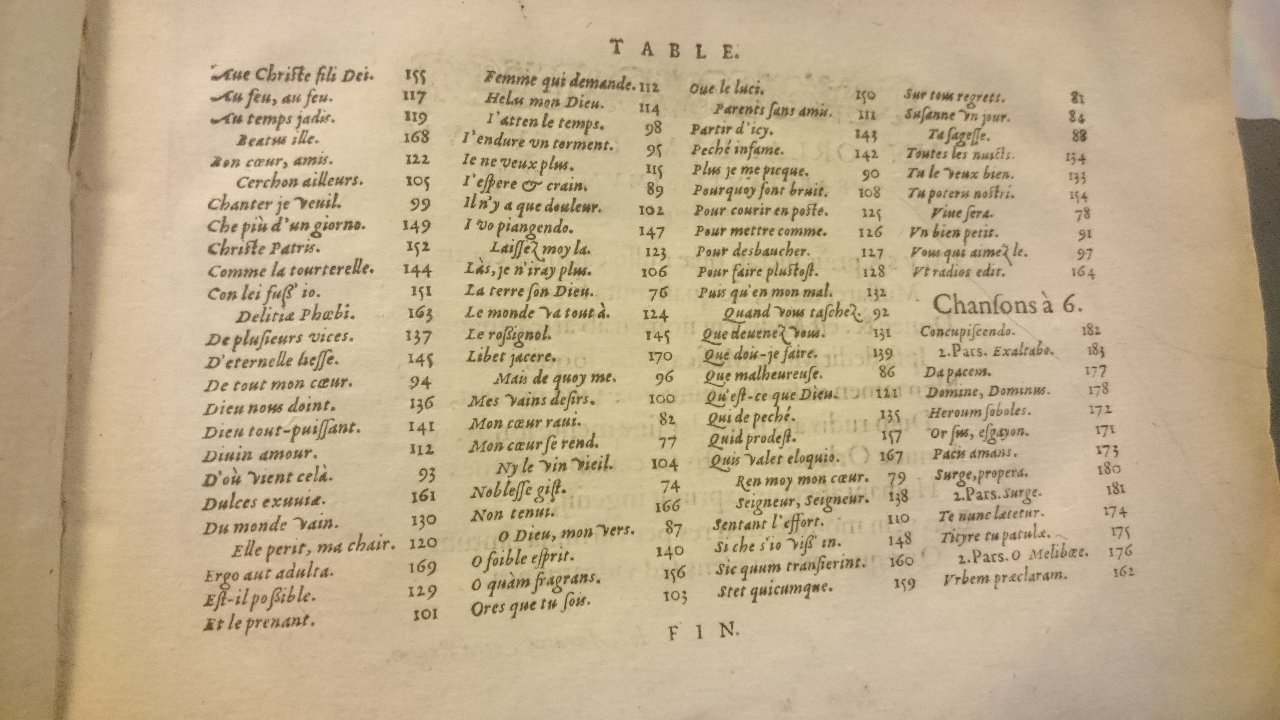 TABLE.
Aue Christe fili Dei. 155
Au feu, au feu. 117
Au temps jadis. 119
Beatus ille. 168
Bon cœur, amis. 122
Cerchon ailleurs. 105
Chanter je veuil. 99
Che più d'un giorno. 149
Christe Patris. 152
Comme la tourterelle. 144
Con lei fuss' io. 151
Delitiæ Phœbî. 163
De plusieurs vices. 137
D'eternelle liesse. 145
De tout mon cœur. 94
Dieu nous doint. 136
Dieu tout-puissant. 141
Diuin amour. 112
D'où vient celà. 93
Dulces exuuiæ. 161
Du monde vain. 130
Elle perit, ma chair. 120
Ergo aut adulta. 169
Est-il possible. 129
Et le prenant. 101
Femme qui demande. 112
Helas mon Dieu. 114
I'atten le temps. 98
I'endure vn torment. 95
Ie ne veux plus. 115
I'espere & crain. 89
Il n'y a que douleur. 102
I vo piangendo. 147
Laissez moy la. 123
Làs, je n'iray plus. 106
La terre son Dieu. 76
Le monde va tout à. 124
Le rossignol. 145
Libet jacere. 170
Mais de quoy me. 96
Mes vains desirs. 100
Mon cœur raui. 82
Mon cœur se rend. 77
Ny le vin vieil. 104
Noblesse gist. 74
Non tenui. 166
O Dieu, mon vers. 87
O foible esprit. 140
O quàm fragrans. 156
Ores que tu sois. 103
Oue le luci. 150
Parents sans amis. 111
Partir d'icy. 143
Peché infame. 142
Plus je me picque. 90
Pourquoy font bruit. 108
Pour courir en poste. 125
Pour mettre comme. 126
Pour desbaucher. 127
Pour faire plustost. 128
Puis qu'en mon mal. 132
Quand vous taschez. 92
Que deuenez vous. 131
Que doi-je faire. 139
Que malheureuse. 86
Qu'est-ce que Dieu. 121
Qui de peché. 135
Quid prodest. 157
Quis valet eloquio. 167
Ren moy mon cœur. 79
Seigneur, Seigneur. 138
Sentant l'effort. 110
Si che s'io viss' in. 148
Sic quum transierint. 160
Stet quicumque. 159
Sur tous regrets. 81
Susanne vn jour. 84
Ta sagesse. 88
Toutes les nuicts. 134
Tu le veux bien. 133
Tu poteris nostri. 154
Viue sera. 78
Vn bien petit. 91
Vous qui aimez le. 97
Vt radios edit. 164
Chansons à 6.
Concupiscendo. 182
2.Pars. Exaltabo. 183
Da pacem. 177
Domine, Dominus. 178
Heroum soboles. 172
Or sus, esgayon. 171
Pacis amans. 173
Surge, propera. 180
2.Pars. Surge. 181
Te nunc lætetur. 174
Tityre tu patulæ. 175
2.Pars. O Melibœe. 176
Vrbem præclaram. 162
FIN.